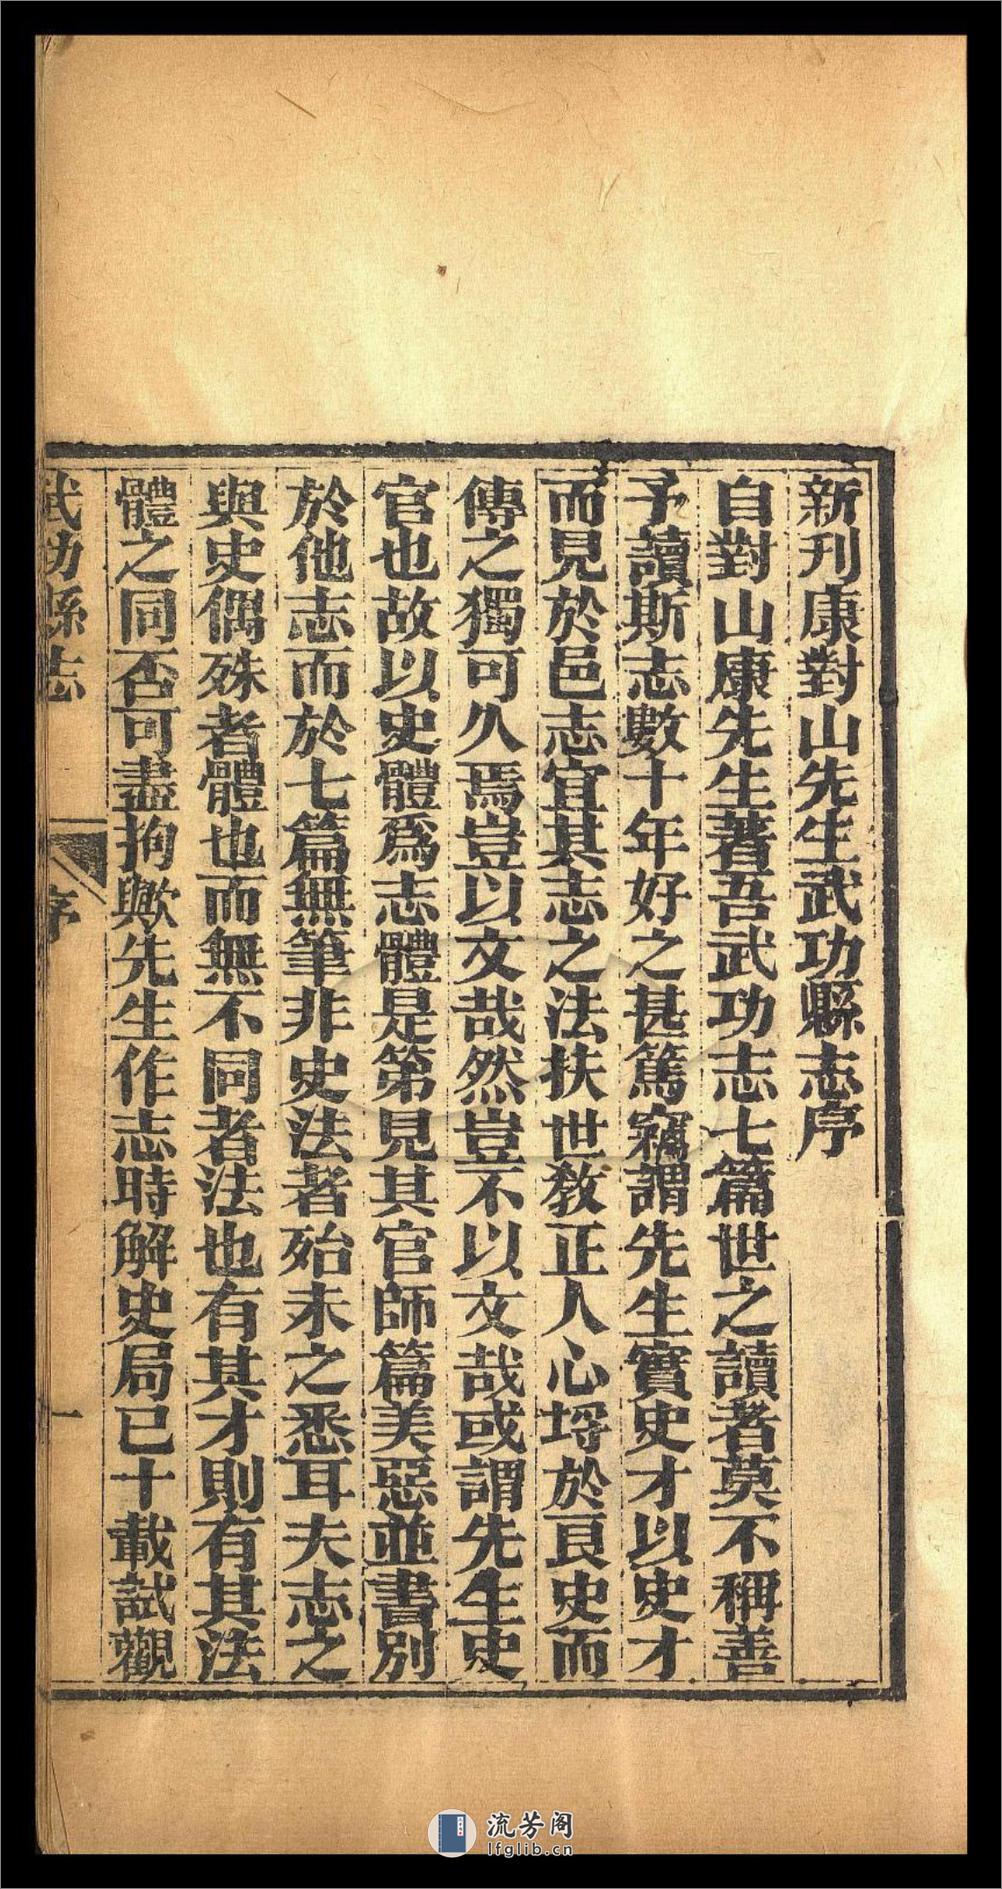 新刊康對山先生武功縣志序
自對山康先生著吾武功志七篇世之讀者莫不稱善
予讀斯志數十年好之甚篤竊謂先生實史才以史才
而見於邑志宜其志之法扶世教正人心埒於良史而
傳之獨可久焉豈以文哉然豈不以文哉或謂先生史
官也故以史體爲志體是第見其官師篇美惡並書別
於他志而於七篇無筆非史法者殆未之悉耳夫志之
與史偶殊者體也而無不同者法也有其才則有其法
體之同否可盡拘歟先生作志時解史局已十載試觀
武功縣志 序 一
流芳阁
lfglib.cn